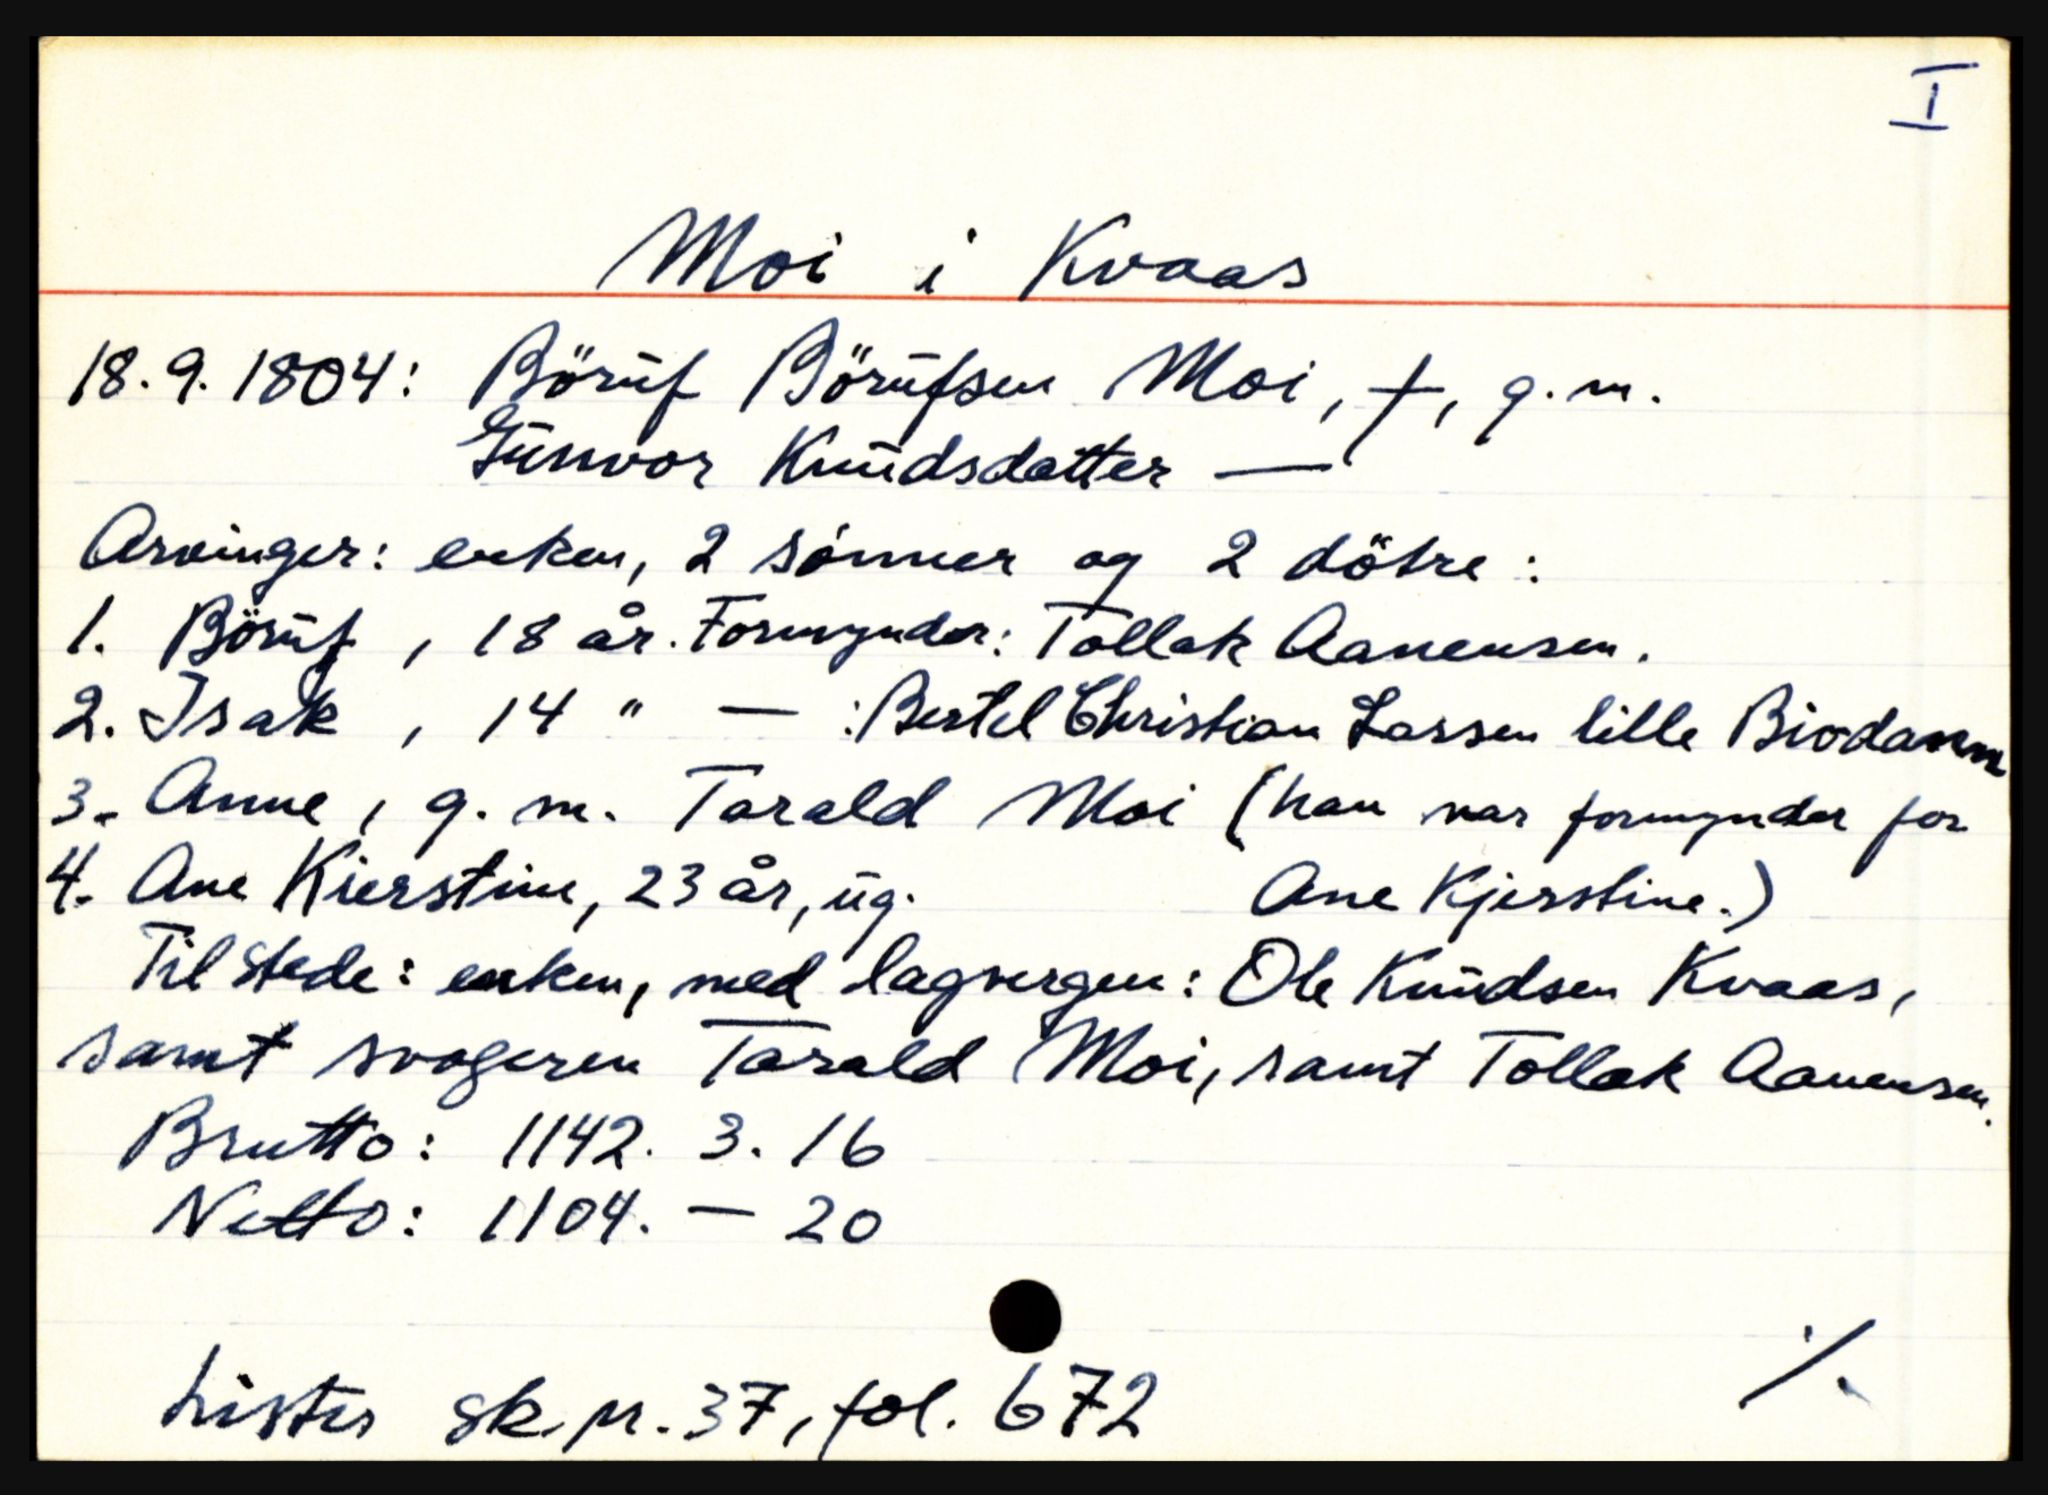 I
Moi i Kvaas
18.9.1804: Börüf Börüfsen Moi, †, g.m.
Günvor Knüdsdatter —
Arvinger: enken, 2 sönner og 2 dötre:
1. Börüf, 18 år. Formynder: Tollak Aanensen.
2. Isak, 14 " — : Bertel Christian Larsen lille Birodamm
3. Anne, g.m. Tarald Moi (han var formynder for
4. Ane Kierstine, 23 år, üg. Ane Kjerstine.)
Til stede: enken, med lagvergen: Ole Knüdsen Kvaas,
samt svogeren Tarald Moi, samt Tollak Aanensen.
Brutto: 1142. 3. 16
Netto: 1104. — 20
Lister sk.pr. 37, fol. 672
./.